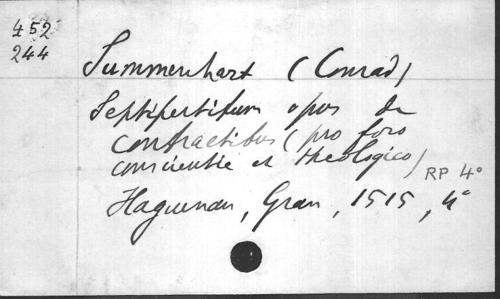 452
244
Summenhart (Conrad)
Septipertitum opus de
contractibus (pro foro
conscientie et theologico)
RP 4°
Haguenau, Gran, 1515, 4°